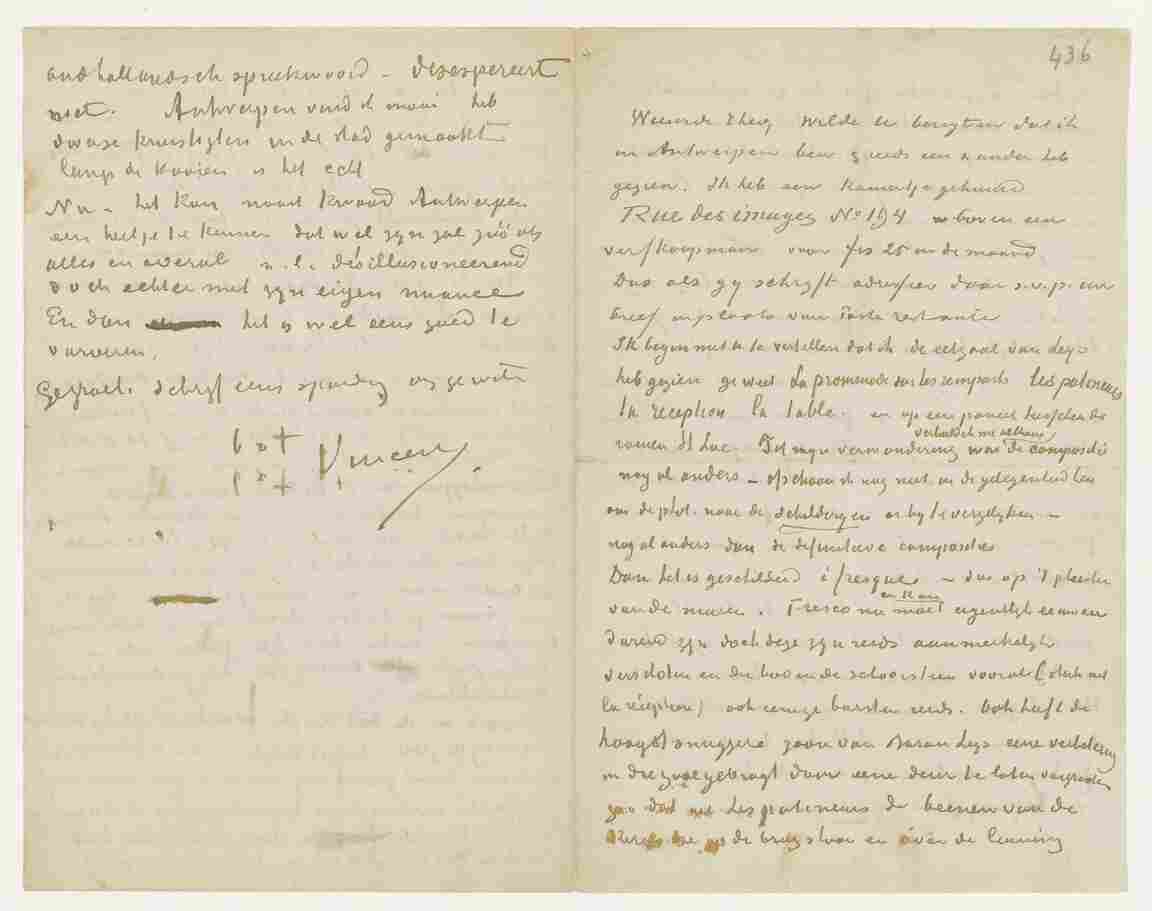 oud hollandsch spreekwoord – désespereert
niet. Antwerpen vind ik mooi heb
in de stad gemaakt
langs de kaaijen is het echt
Nu – het kan nooit kwaad Antwerpen
een beetje te kennen dat wel zijn zal zooals
alles en overal n.l. désillusioneerend
doch echter met zijn eigen nuance
En dan het is wel eens goed te
varieeren.
Gegroet. schrijf eens spoedig als ge wilt
b. à t.
b. à t. Vincent
436
Waarde Theo, wilde U berigten dat ik
in Antwerpen ben & reeds een & ander heb
gezien. Ik heb een kamertje gehuurd
Rue des images No 194 boven een
verfkoopman voor frs 25 in de maand
Dus als gij schrijft adresseer daar s.v.p. uw
brief in plaats van Poste restante
Ik begin met U te vertellen dat ik de eetzaal van Leys
heb gezien ge weet La promenade sur les remparts les patineurs
la réception La table. en op een paneel tusschen de
ramen St Luc. Tot mijn verwondering was de compositie
nog al anders – ofschoon ik nog niet in de gelegenheid ben
om de phot. naar de schilderijen er bij te vergelijken –
nog al anders dan de definitieve composities
Dan het is geschilderd à fresque – dus op 't pleister
van de muur. Fresco nu moet en kan eigentlijk eeuwen
durend zijn doch deze zijn reeds aanmerkelijk
verschoten en die boven de schoorsteen vooral (stuk met
la réception) ook eenige barsten reeds. Ook heeft de
zoon van Baron Leys eene verbetering
in die zaal gebragt door eene deur te laten vergrooten
zoo dat met Les patineurs de beenen van de
die op de brug staan en over de leuning